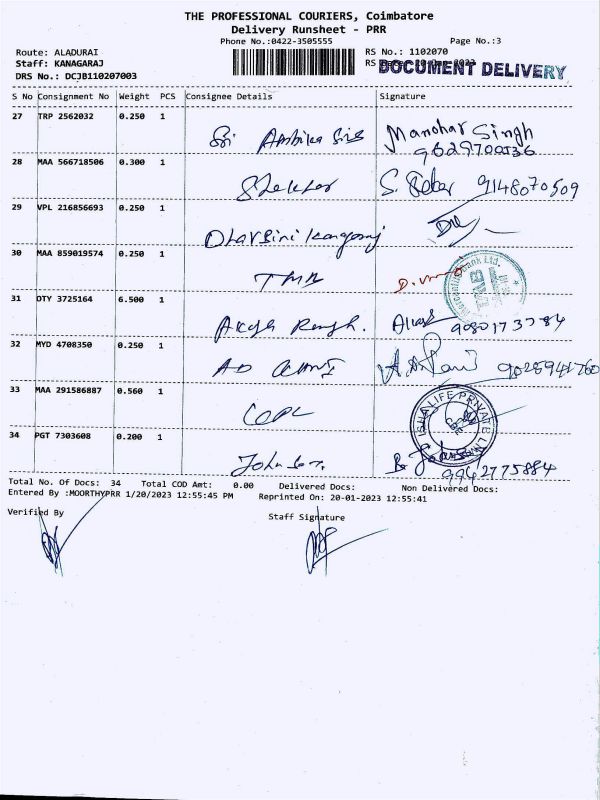 THE PROFESSIONAL COURIERS, Coimbatore
Delivery Runsheet - PRR
Phone No.:0422-3505555 Page No.:3
Route: ALADURAI RS No.: 1102070
Staff: KANAGARAJ RS
DOCUMENT DELIVERY
DRS No.: DCJB110207003
S No Consignment No Weight PCS Consignee Details Signature
27 TRP 2562032 0.250 1
Sri Ambika Manohar Singh
9629700536
28 MAA 566718506 0.300 1
Shekhar S. 9148070509
29 VPL 216856693 0.250 1
Dharsini
30 MAA 859019574 0.250 1
TMB
31 OTY 3725164 6.500 1
9080173784
32 MYD 4708350 0.250 1
AD 9028941760
33 MAA 291586887 0.560 1
ISHA LIFE PRIVATE
34 PGT 7303608 0.200 1
Johnson
9942775884
Total No. Of Docs: 34 Total COD Amt: 0.00 Delivered Docs: Non Delivered Docs:
Entered By :MOORTHYPRR 1/20/2023 12:55:45 PM Reprinted On: 20-01-2023 12:55:41
Verified By Staff Signature